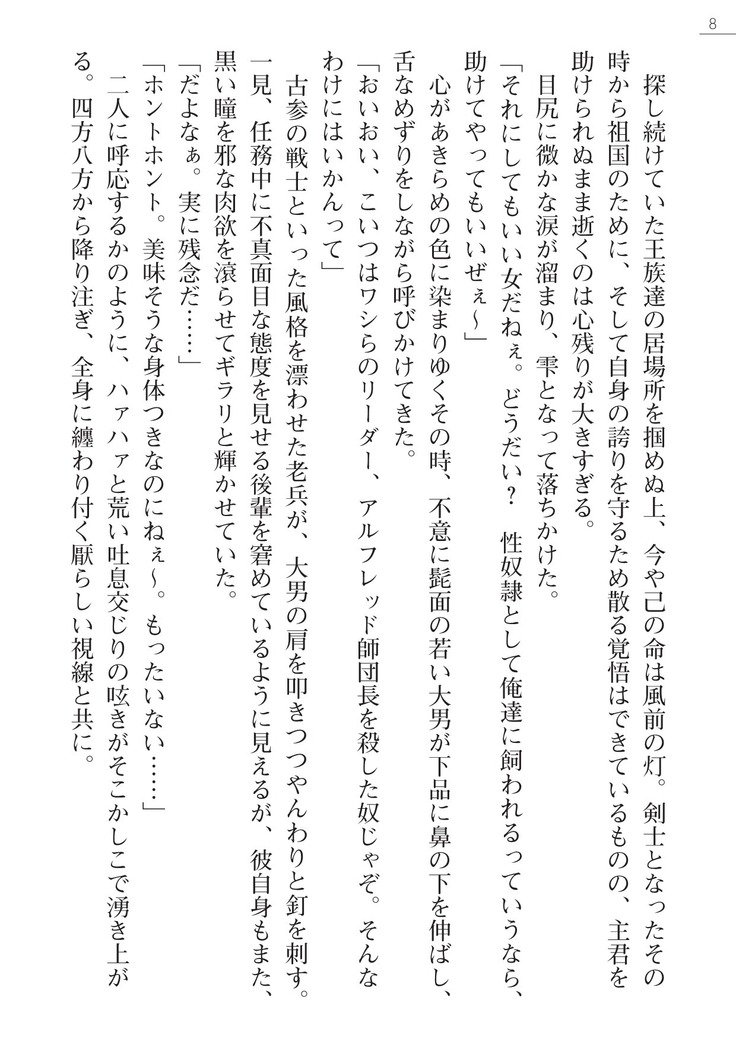 8
　探し続けていた王族達の居場所を掴めぬ上、今や己の命は風前の灯。剣士となったその
時から祖国のために、そして自身の誇りを守るため散る覚悟はできているものの、主君を
助けられぬまま逝くのは心残りが大きすぎる。
　目尻に微かな涙が溜まり、雫となって落ちかけた。
「それにしてもいい女だねぇ。どうだい？　性奴隷として俺達に飼われるっていうなら、
助けてやってもいいぜぇ～」
　心があきらめの色に染まりゆくその時、不意に髭面の若い大男が下品に鼻の下を伸ばし、
舌なめずりをしながら呼びかけてきた。
「おいおい、こいつはワシらのリーダー、アルフレッド師団長を殺した奴じゃぞ。そんな
わけにはいかんって」
　古参の戦士といった風格を漂わせた老兵が、大男の肩を叩きつつやんわりと釘を刺す。
一見、任務中に不真面目な態度を見せる後輩を窘めているように見えるが、彼自身もまた、
黒い瞳を邪な肉欲を滾らせてギラリと輝かせていた。
「だよなぁ。実に残念だ……」
「ホントホント。美味そうな身体つきなのにねぇ～。もったいない……」
　二人に呼応するかのように、ハァハァと荒い吐息交じりの呟きがそこかしこで湧き上が
る。四方八方から降り注ぎ、全身に纏わり付く厭らしい視線と共に。